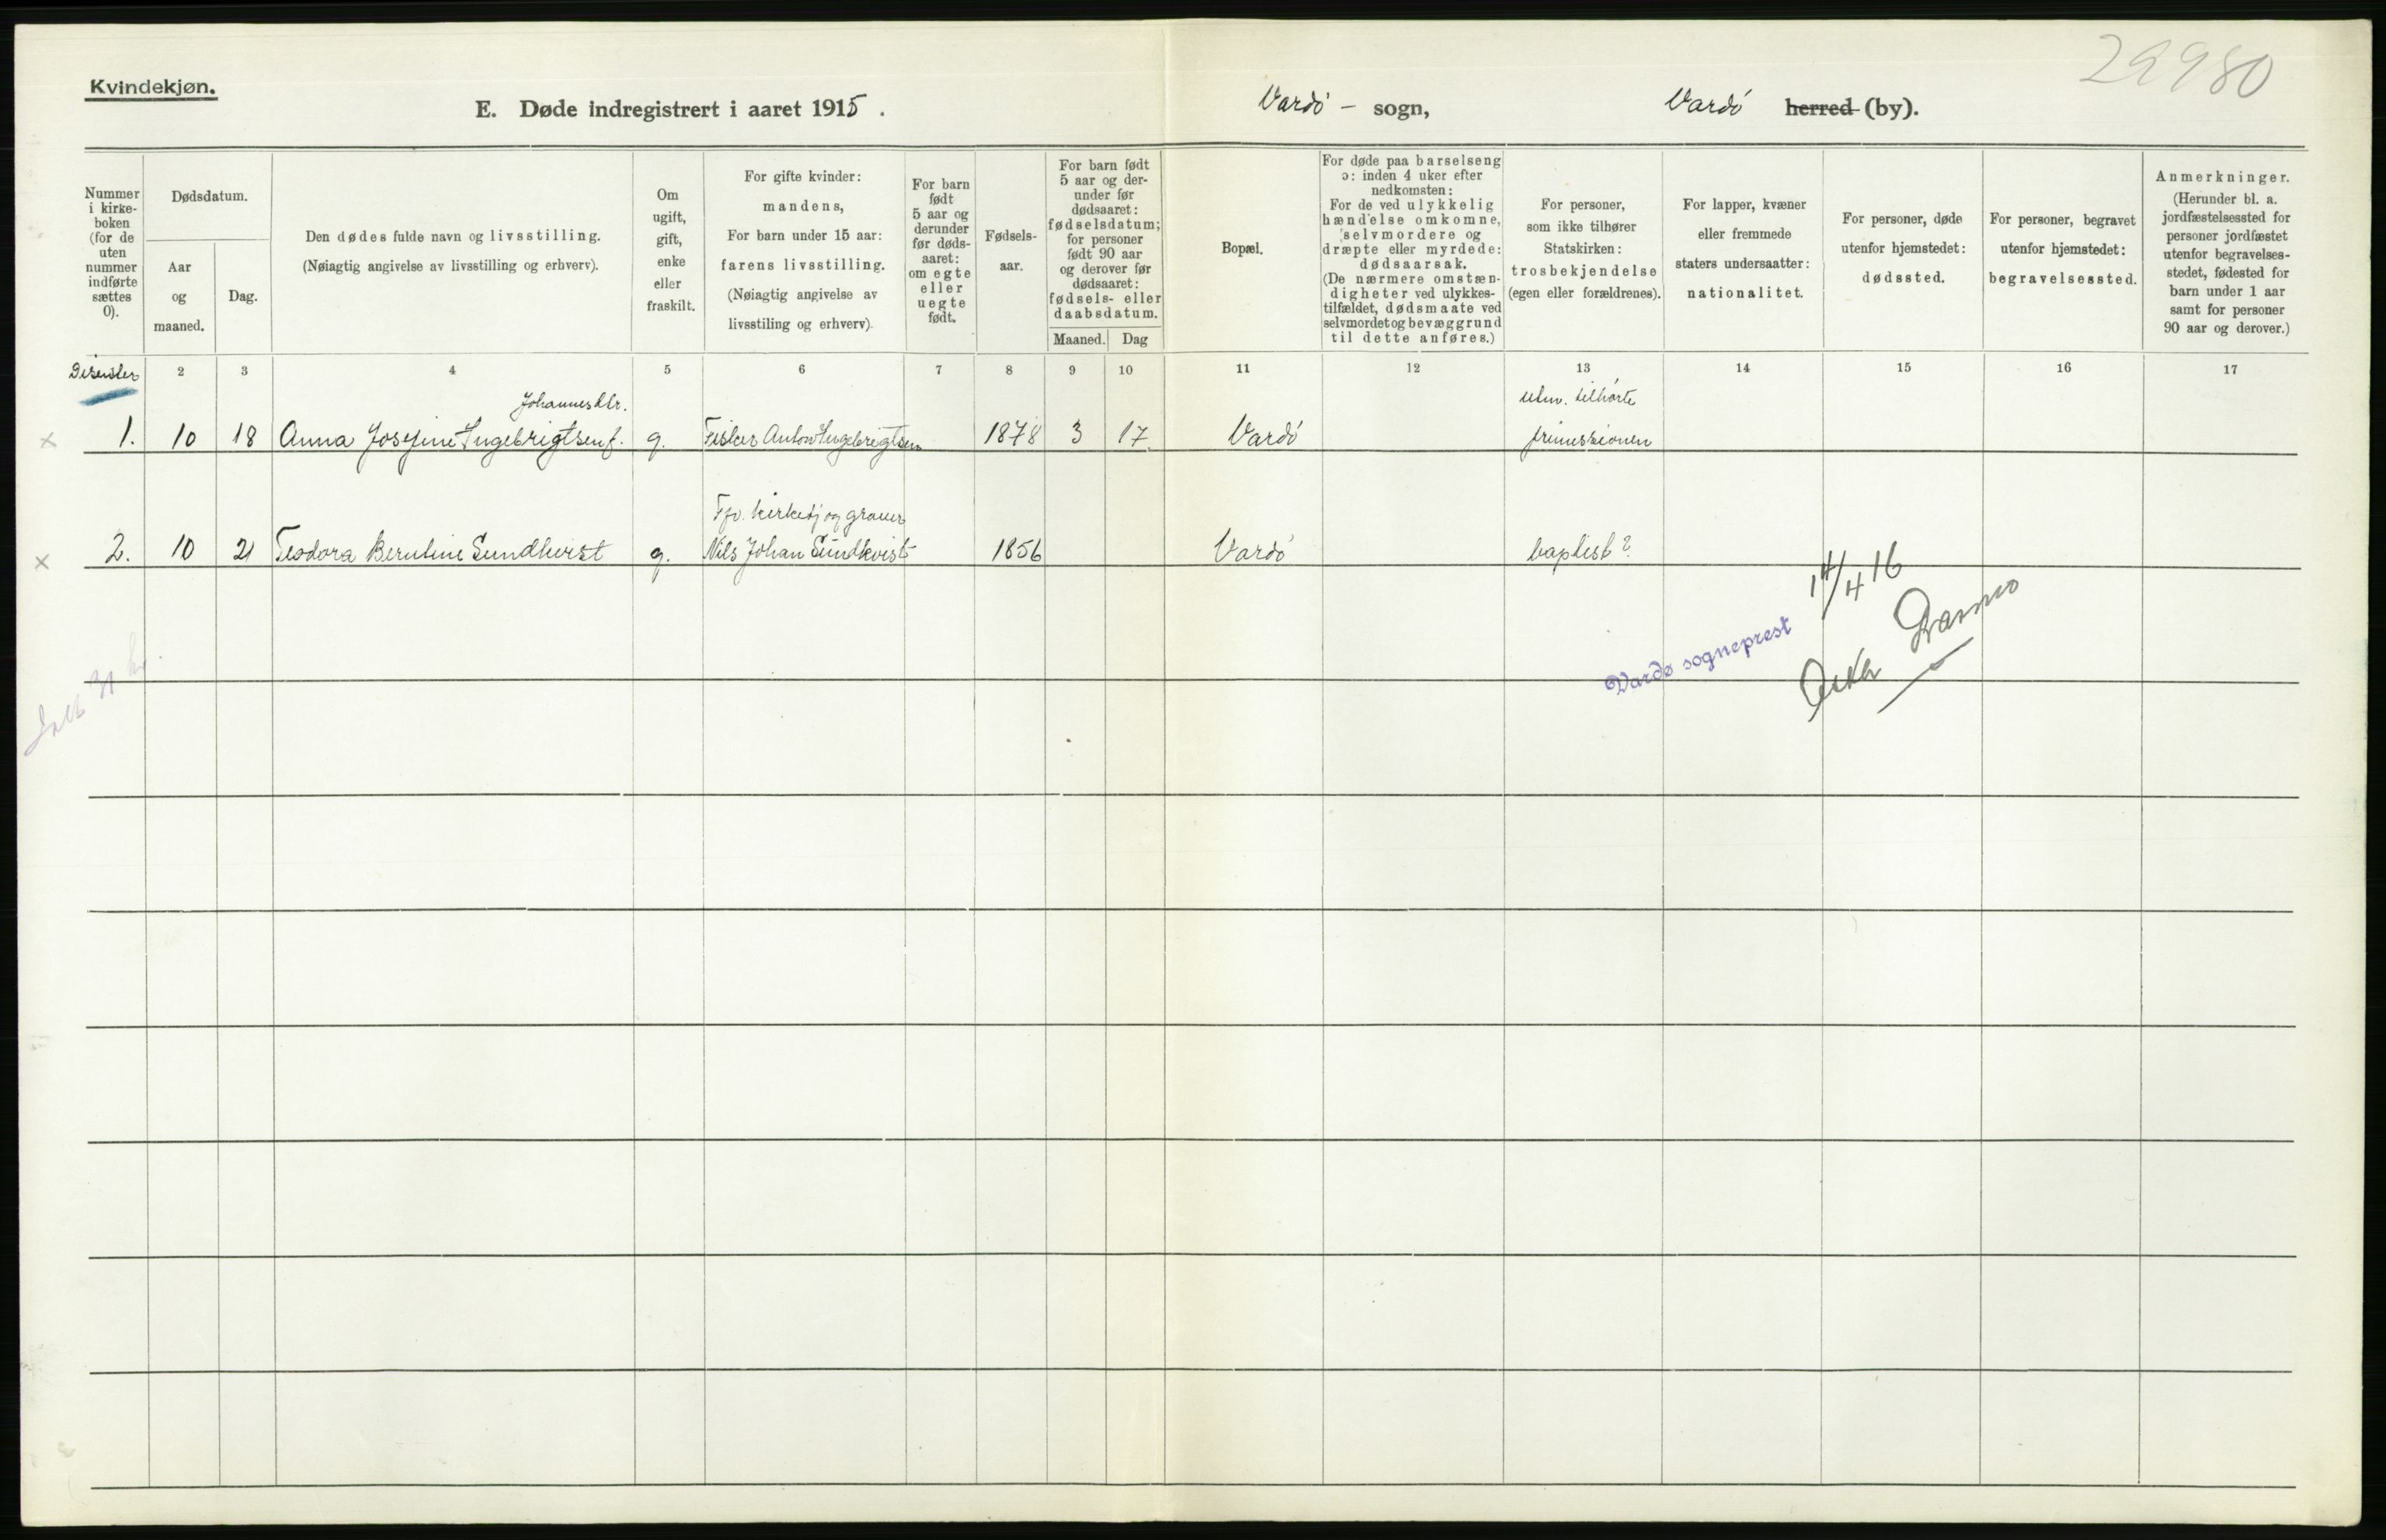 29980
Kvindekjøn.
E. Døde indregistrert i aaret 1915.
Vardö - sogn,
Vardö herred (by).
Nummer i kirkeboken (for de uten nummer indførte sættes 0).
Dødsdatum.
Aar og maaned.
Dag.
Den dødes fulde navn og livsstilling.
(Nøiagtig angivelse av livsstilling og erhverv).
Om ugift, gift, enke eller fraskilt.
For gifte kvinder: mandens,
For barn under 15 aar: farens livsstilling.
(Nøiagtig angivelse av livsstiling og erhverv).
For barn født 5 aar og derunder før dødsaaret: om egte eller uegte født.
Fødselsaar.
For barn født 5 aar og derunder før dødsaaret: fødselsdatum; for personer født 90 aar og derover før dødsaaret: fødsels- eller daabsdatum.
Maaned.
Dag
Bopæl.
For døde paa barselseng ɔ: inden 4 uker efter nedkomsten:
For de ved ulykkelig hændelse omkomne, selvmordere og dræpte eller myrdede: dødsaarsak.
(De nærmere omstændigheter ved ulykkestilfældet, dødsmaate ved selvmordet og bevæggrund til dette anføres.)
For personer, som ikke tilhører Statskirken: trosbekjendelse (egen eller forældrenes).
For lapper, kvæner eller fremmede staters undersaatter: nationalitet.
For personer, døde utenfor hjemstedet: dødssted.
For personer, begravet utenfor hjemstedet: begravelsessted.
Anmerkninger.
(Herunder bl. a. jordfæstelsessted for personer jordfæstet utenfor begravelsesstedet, fødested for barn under 1 aar samt for personer 90 aar og derover.)
2 3 4 5 6 7 8 9 10 11 12 13 14 15 16 17
Johannesdtr. utm. tilhörte
× 1. 10 18 Anna Josefine Ingebrigtsen f. g. Fisker Anton Ingebrigtsen 1878 3 17. Vardö frimissionen
kirketj og graver
× 2. 10 21 Teodora Berntine Sundkvist g. Nils Johan Sundkvist 1856 Vardö baptist?
14/4 16
Vardø sogneprest